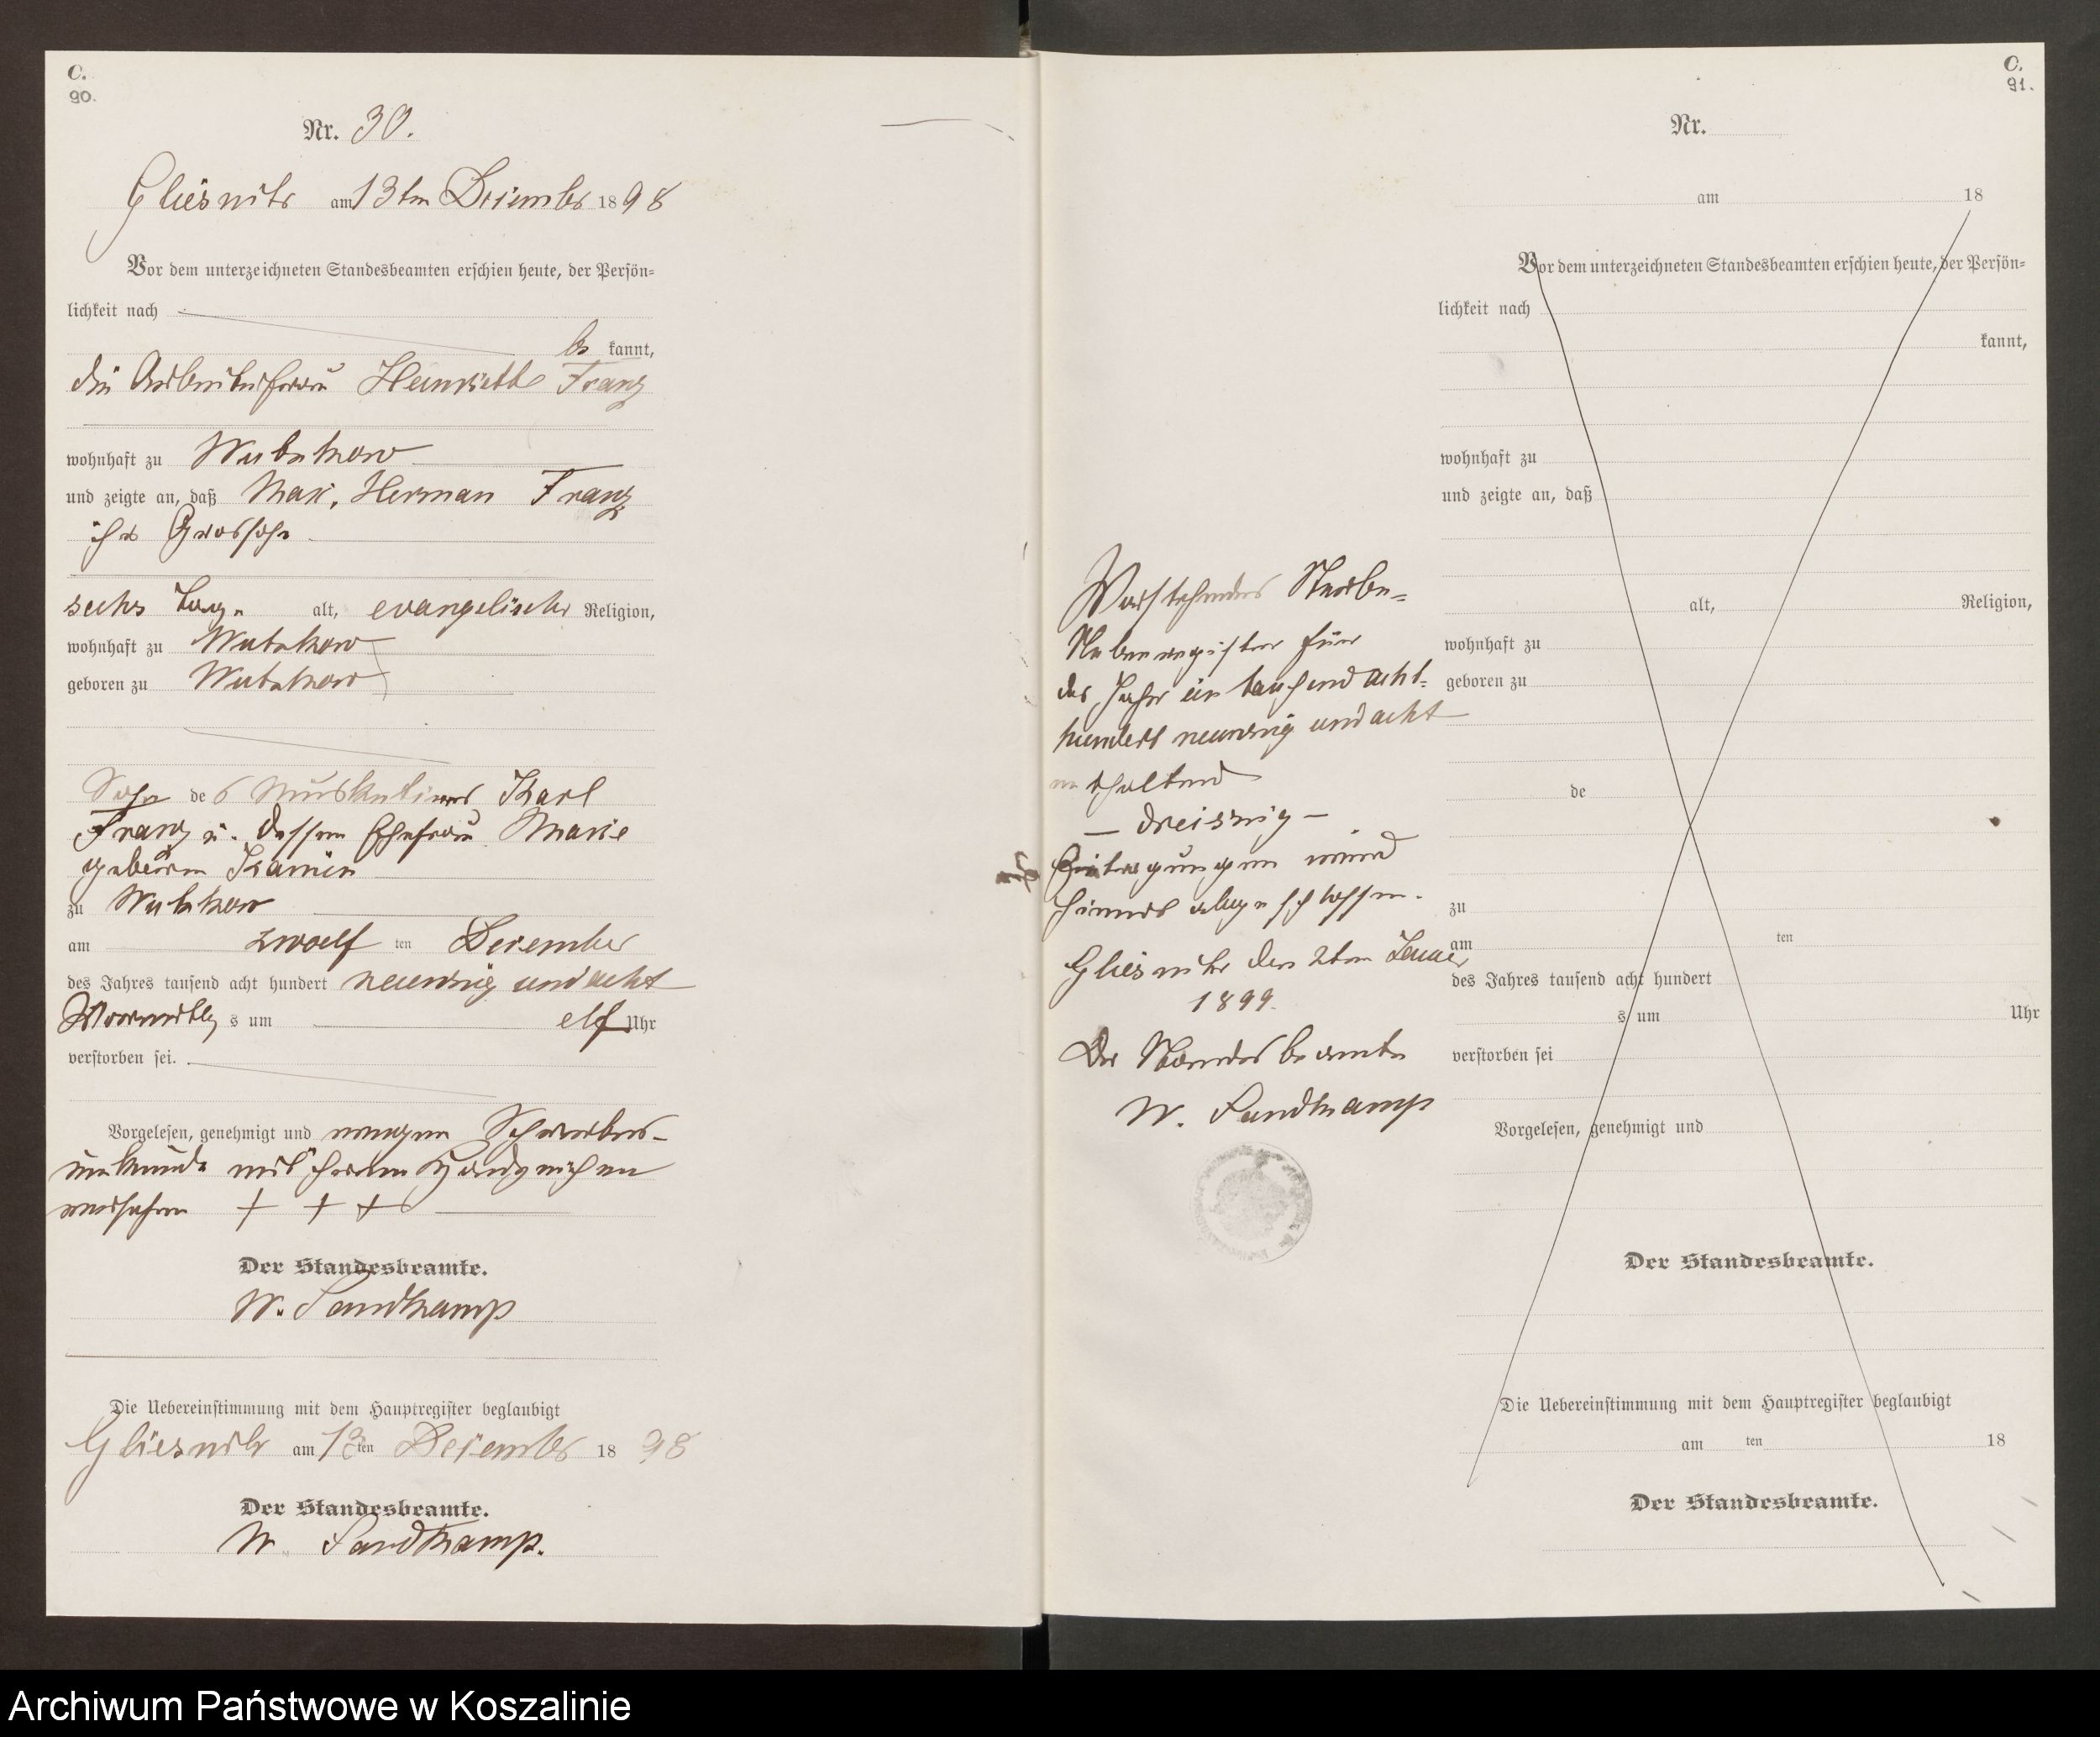 C.
90.
Nr. 30.
Gliesnitz am 13ten Dezember 1898
Vor dem unterzeichneten Standesbeamten erschien heute, der Persön=
lichkeit nach
be kannt,
die Arbeiterfrau Henriette Franz
wohnhaft zu Wutzkow
und zeigte an, daß Max, Herman Franz
ihr Grossohn
sechs Tage alt, evangelischer Religion,
wohnhaft zu Wutzkow
geboren zu Wutzkow
Sohn des Musketiers Karl
Franz u. dessen Ehefrau Marie
geboren
zu Wutzkow
am zwoelf ten Dezember
des Jahres tausend acht hundert neunzig und acht
Vormittag s um elf Uhr
verstorben sei.
Vorgelesen, genehmigt und wegen Schreibens-
unkunde mit ihrem Handzeichen
versehen + + +
Der Standesbeamte.
W. Sandkamp
Die Uebereinstimmung mit dem Hauptregister beglaubigt
Gliesnitz am 13ten Dezember 18 98
Der Standesbeamte.
W. Sandkamp.
C.
91.
Nr.
am 18
Vor dem unterzeichneten Standesbeamten erschien heute, der Persön=
lichkeit nach
kannt,
wohnhaft zu
und zeigte an, daß
alt, Religion,
wohnhaft zu
geboren zu
de
zu
am ten
des Jahres tausend acht hundert
s um Uhr
verstorben sei
Vorgelesen, genehmigt und
Der Standesbeamte.
Die Uebereinstimmung mit dem Hauptregister beglaubigt
am ten 18
Der Standesbeamte.
Vorstehendes Sterbe=
Nebenregister für
das Jahr ein tausend acht=
hundert neunzig und acht
enthaltend
— dreiszig —
Eintragungen wird
hiermit abgeschlossen.
Gliesnitz den 2ten Januar
1899.
Der Standesbeamte
W. Sandkamp
Archiwum Państwowe w Koszalinie